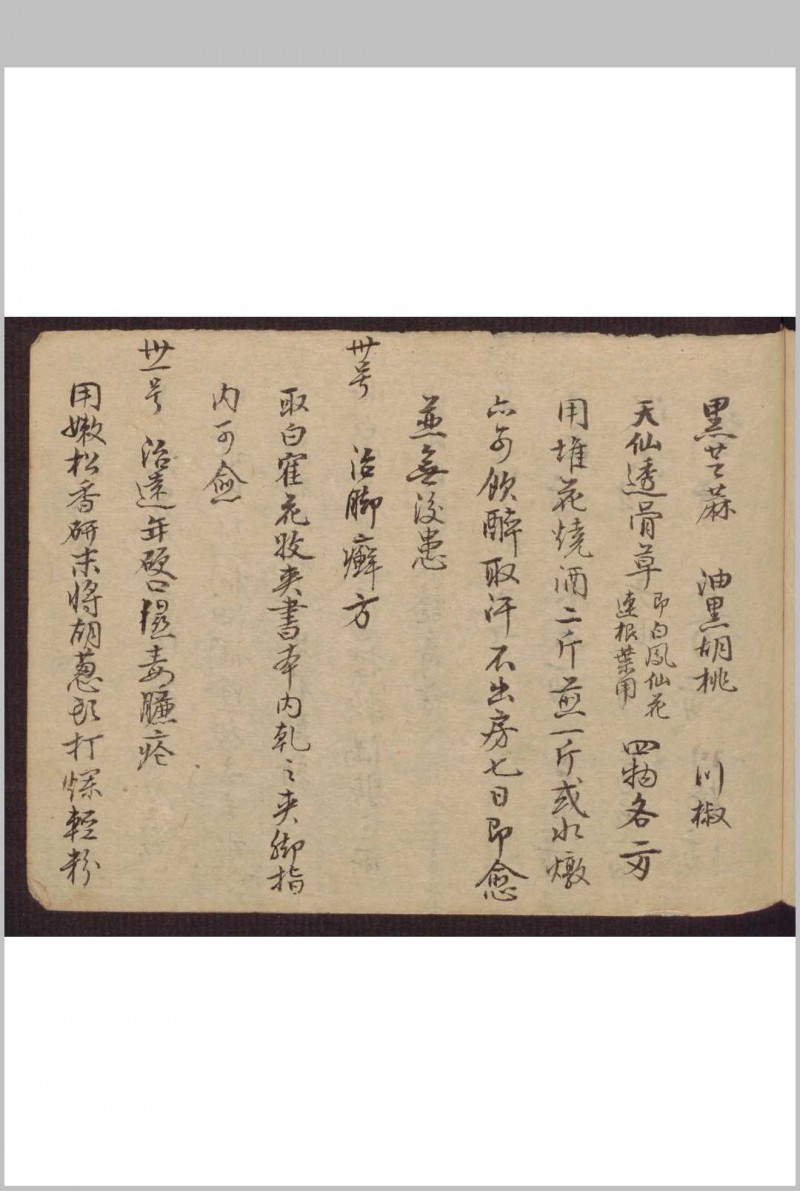 黑芝蔴　油黑胡桃　川椒
天仙透骨草　即白鳳仙花連根葉用　四物各二两
用堆花燒酒二斤煎一斤或水燉
飲醉取汗不出房七日即愈
並無後患
卅号　治脚癬方
取白藿花收夾書本内乾之夾脚指
内可愈
卅一号　治遠年硬口濕毒臁疮
用嫩松香研末將胡蔥打爛輕粉